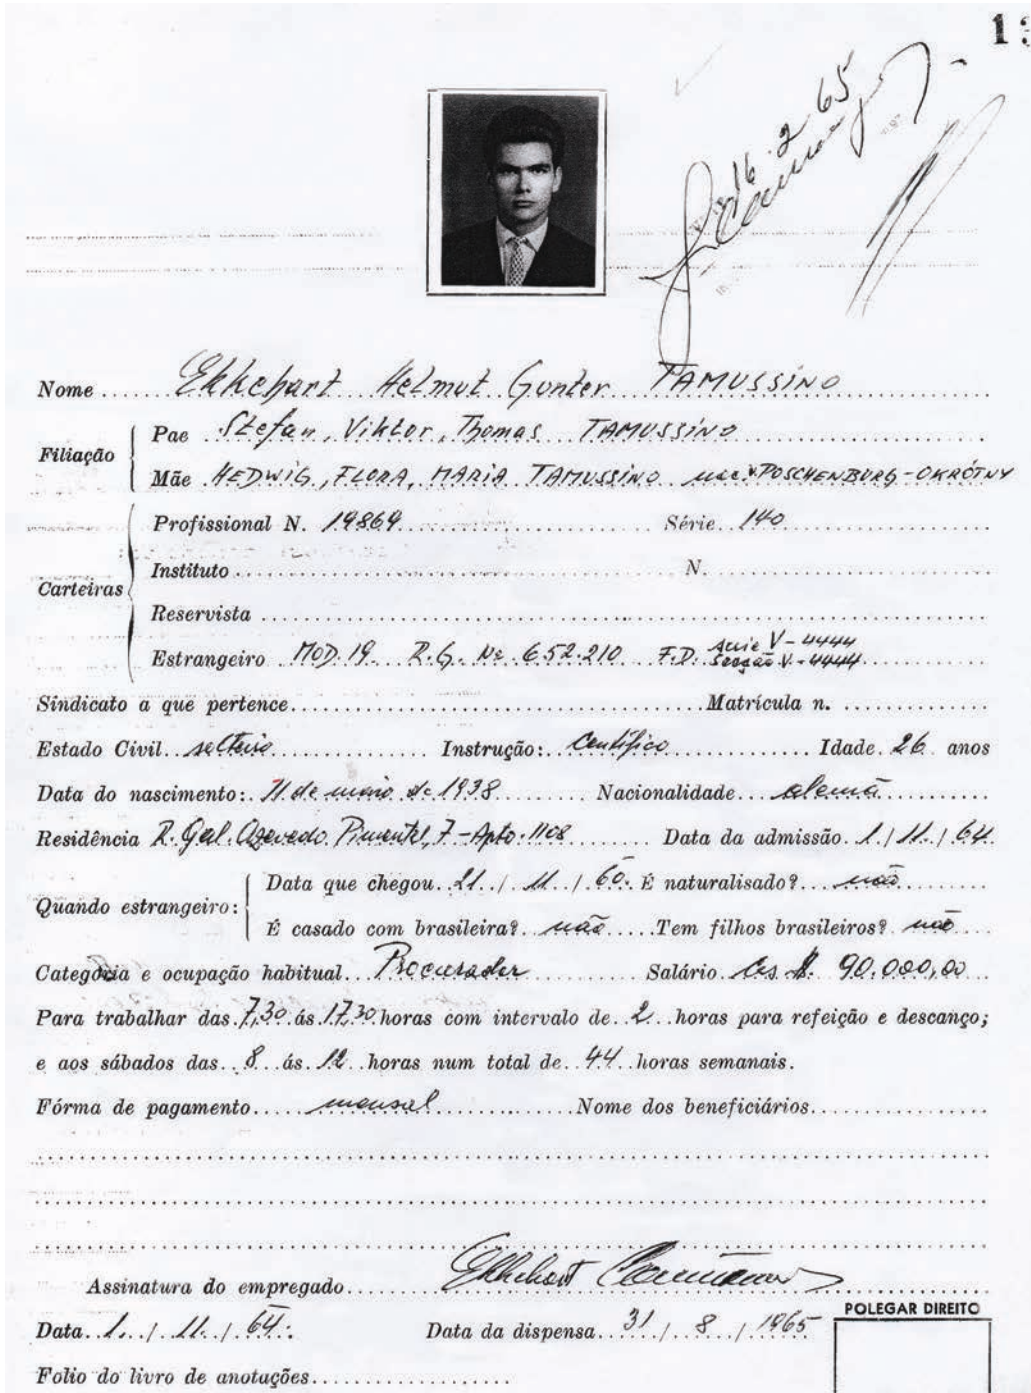 13
16.2.65
Nome ...... Ekkehart Helmut Gunter TAMUSSINO
Filiação
Pae Stefan, Viktor, Thomas TAMUSSINO
Mãe HEDWIG, FLORA, MARIA TAMUSSINO POSCHENBURG-OKRÓTNY
Carteiras
Profissional N. 19869 Série 140
Instituto N.
Reservista
Estrangeiro MOD. 19 R.G. Nº 652.210 F.D. V-4444
V-4444
Sindicato a que pertence Matrícula n.
Estado Civil solteiro Instrução: Científico Idade 26 anos
Data do nascimento: 11 de maio de 1938 Nacionalidade alemã
Residência R. Gal. Azevedo Pimentel, 7-Apto. 1108 Data da admissão 1 / 11 / 64
Quando estrangeiro:
Data que chegou 21 / 11 / 60. É naturalisado? não
É casado com brasileira? não Tem filhos brasileiros? não
Categoria e ocupação habitual Procurador Salário Crs $ 90.000,00
Para trabalhar das 7,30 ás 17,30 horas com intervalo de 2 horas para refeição e descanço;
e aos sábados das 8 ás 12 horas num total de 44 horas semanais.
Fórma de pagamento mensal Nome dos beneficiários
Assinatura do empregado Ekkehart Tamussino
Data 1 / 11 / 64. Data da dispensa 31 / 8 / 1965
POLEGAR DIREITO
Folio do livro de anotações